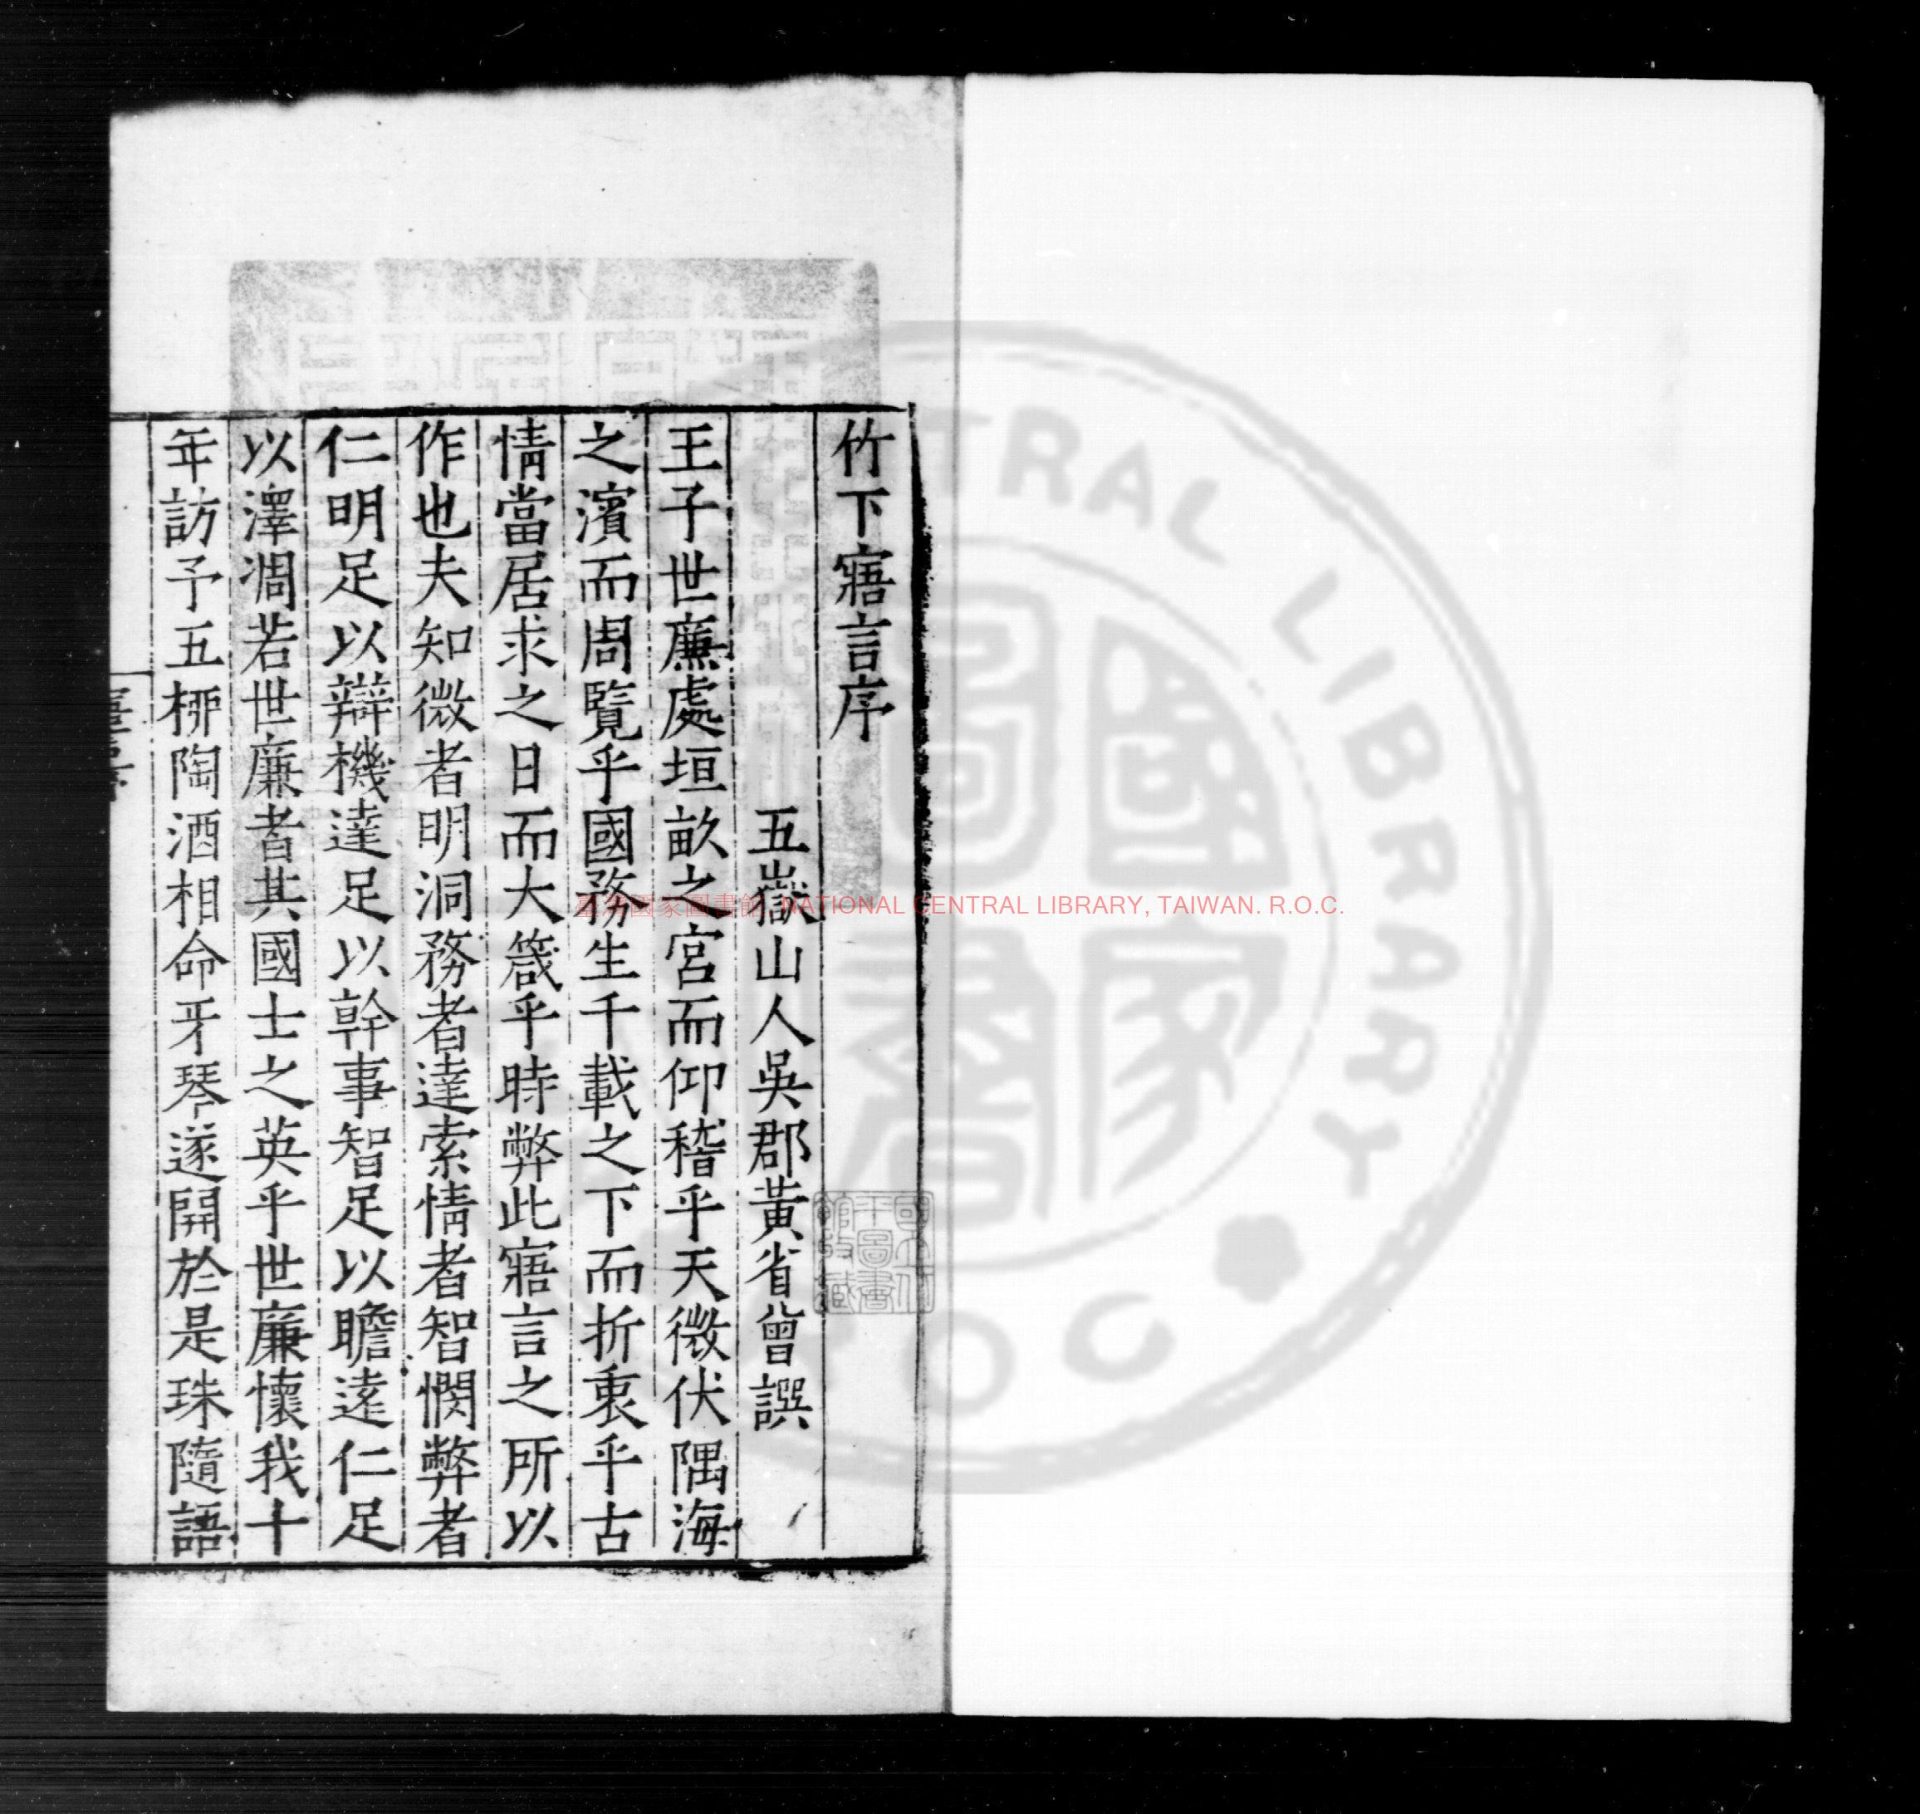 竹下寤言序
五嶽山人吳郡黃省曾譔
王子世廉處垣畝之宮而仰稽乎天微伏隅海
之濱而周覽乎國務生千載之下而折衷乎古
情當居求之日而大箴乎時弊此寤言之所以
作也夫知微者明洞務者達索情者智憫弊者
仁明足以辯機達足以幹事智足以瞻遠仁足
以澤凋若世廉者其國士之英乎世廉懷我十
年訪予五栁陶酒相命牙琴遂開於是珠隨語
臺灣國家圖書館, NATIONAL CENTRAL LIBRARY, TAIWAN. R.O.C.